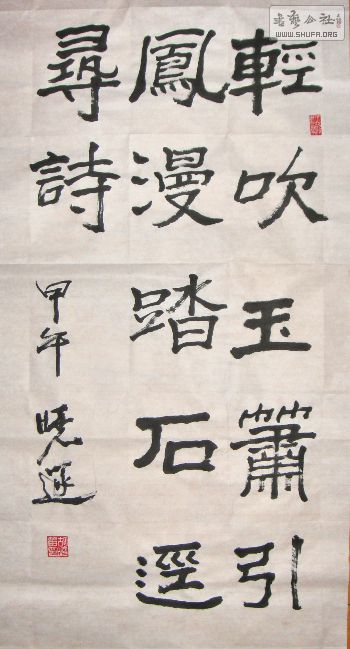 輕吹玉簫引
鳳漫踏石逕
尋詩
甲午 曉逕
书艺公社
WWW.SHUFA.ORG